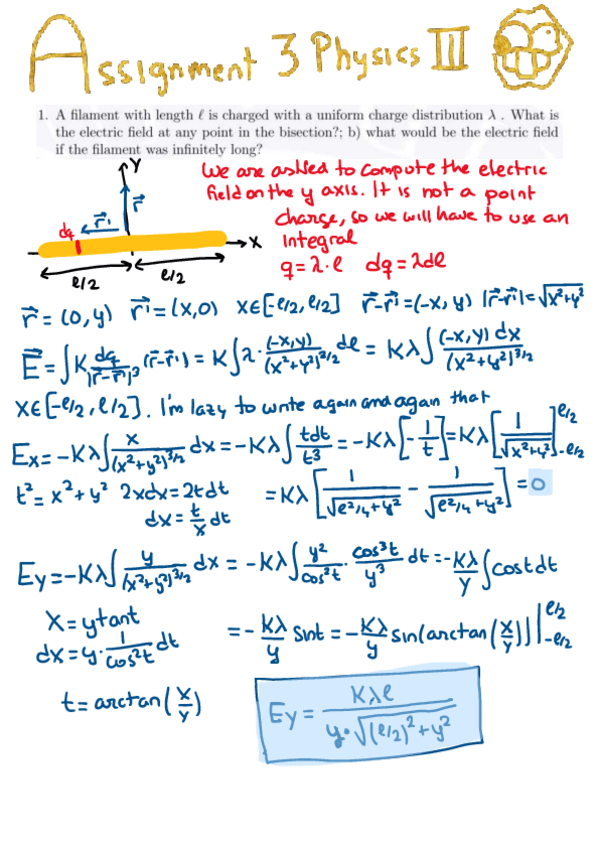 Assignment 3 Physics III
1. A filament with length ℓ is charged with a uniform charge distribution λ . What is
the electric field at any point in the bisection?; b) what would be the electric field
if the filament was infinitely long?
We are asked to compute the electric
field on the y axis. It is not a point
charge, so we will have to use an
Integral
q = λ·ℓ dq = λdℓ
Y
r⃗
r⃗'
dq
X
ℓ/2 ℓ/2
r⃗ = (0,y) r⃗' = (x,0) x∈[-ℓ/2,ℓ/2] r⃗-r⃗' = (-x,y) |r⃗-r⃗'| = √(x²+y²)
E⃗ = ∫K dq/|r⃗-r⃗'|³ (r⃗-r⃗') = K∫λ·(-x,y)/(x²+y²)^(3/2) dℓ = Kλ∫(-x,y)dx/(x²+y²)^(3/2)
x∈[-ℓ/2,ℓ/2]. I'm lazy to write again and again that
Ex = -Kλ∫x/(x²+y²)^(3/2) dx = -Kλ∫tdt/t³ = -Kλ[-1/t] = Kλ[1/√(x²+y²)]_(-ℓ/2)^(ℓ/2)
t² = x²+y² 2xdx = 2tdt = Kλ[1/√(ℓ²/4+y²) - 1/√(ℓ²/4+y²)] = 0
dx = t/x dt
Ey = -Kλ∫y/(x²+y²)^(3/2) dx = -Kλ∫y²/cos²t · cos³t/y³ dt = -Kλ/y ∫cost dt
x = y tant
dx = y·1/cos²t dt = -Kλ/y sint = -Kλ/y sin(arctan(x/y))|_(-ℓ/2)^(ℓ/2)
t = arctan(x/y)
Ey = Kλℓ/(y·√((ℓ/2)²+y²))